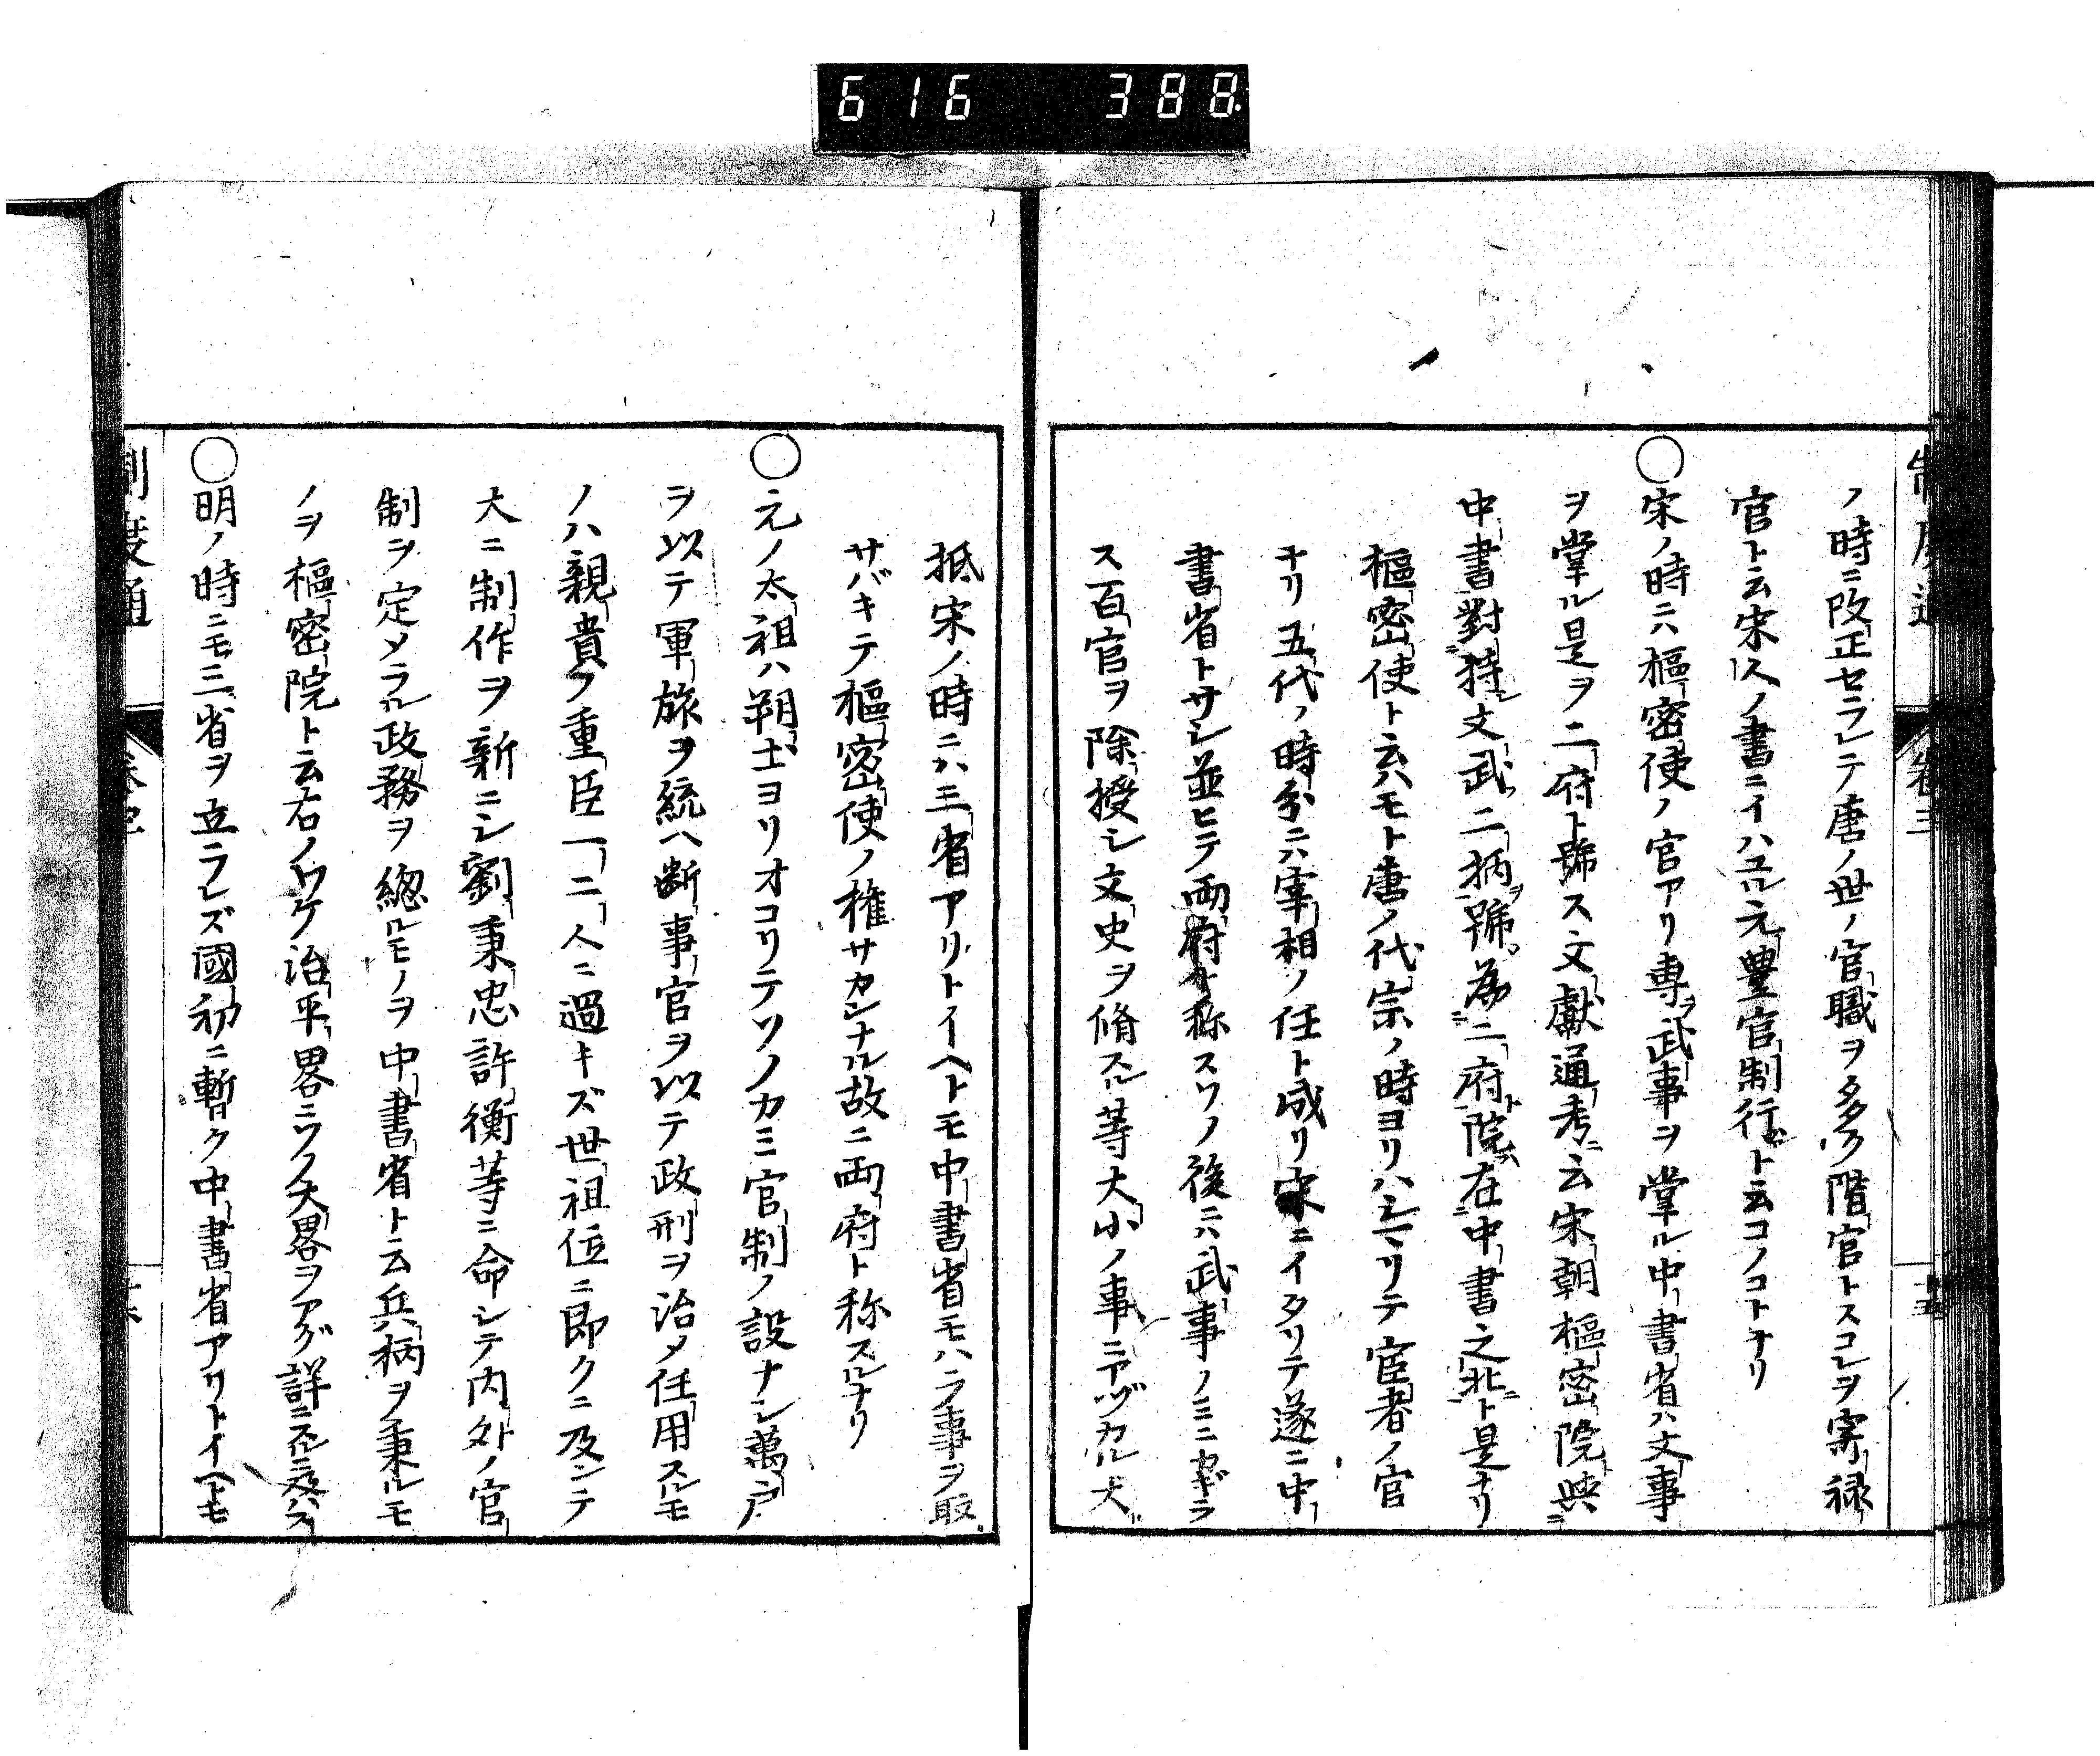 616 388
ノ時ニ改正セラレテ唐ノ世ノ官職ヲ多ク階官トスコレヲ寄禄
官ト云宋人ノ書ニイハユル元豊官制行ト云コノコトナリ
○宋ノ時ニハ樞密使ノ官アリ専ヲ武事ヲ掌ル中書省ハ文事
ヲ掌ル是ヲ二府ト號ス文獻通考ニ云宋朝樞密院與
中書對持シ文武二柄ヲ號為二府ト院在中書之北ニト是ナリ
樞密使ト云ハモト唐ノ代宗ノ時ヨリハシマリテ宦者ノ官
ナリ五代ノ時分ニハ宰相ノ任ト成リ宋ニイタリテ遂ニ中
書省トサシ並ヒテ両府ト称スソノ後ニハ武事ノミニカギラ
ス百官ヲ除授シ文史ヲ脩スル等大小ノ事ニアヅカル大
抵宋ノ時ニハ三省アリトイヘトモ中書省モハラ事ヲ取
サバキテ樞密使ノ權サカンナル故ニ両府ト称スルナリ
○元ノ太祖ハ朔土ヨリオコリテソノカミ官制ノ設ナシ萬戸
ヲ以テ軍旅ヲ統ヘ断事官ヲ以テ政刑ヲ治メ任用スルモ
ノハ親貴ノ重臣一二人ニ過キズ世祖位ニ即クニ及ンテ
大ニ制作ヲ新ニシ劉秉忠許衡等ニ命シテ内外ノ官
制ヲ定メラル政務ヲ總ルモノヲ中書省ト云兵柄ヲ秉ルモ
ノヲ樞密院ト云右ノワケ治平畧ニソノ大畧ヲアグ詳ニスルニ及ハス
○明ノ時ニモ三省ヲ立ラレズ國初ニ暫ク中書省アリトイヘトモ
制度通